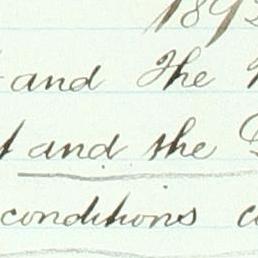 189
and The
and the
conditions